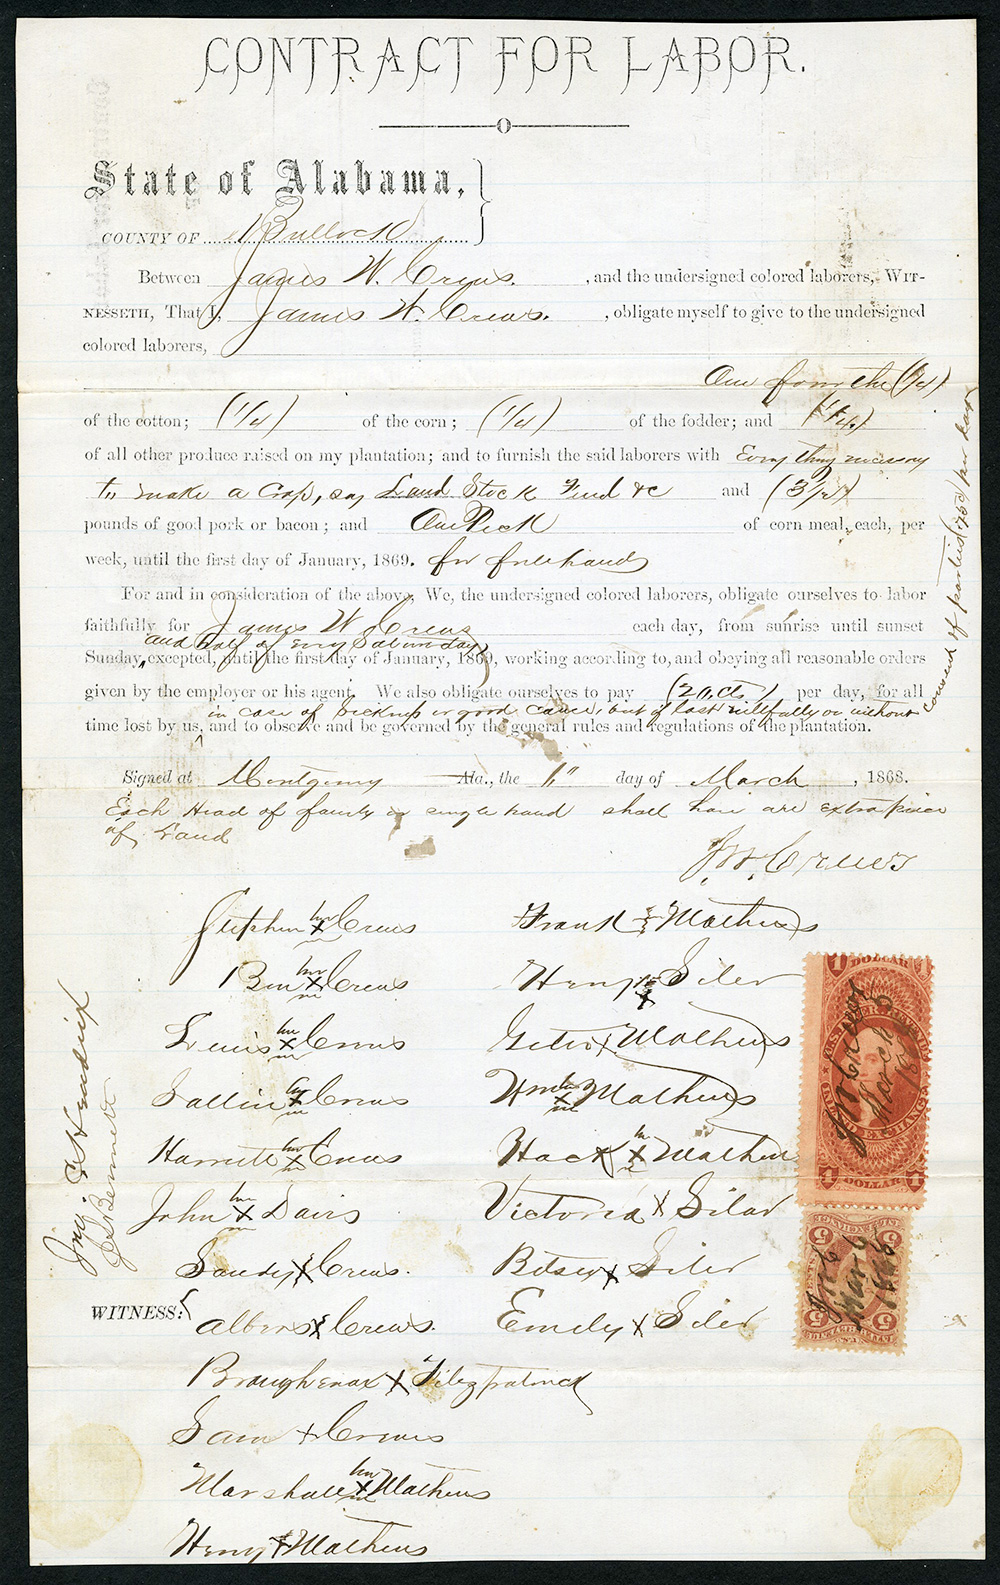 CONTRACT FOR LABOR.
State of Alabama,
COUNTY OF Bullock
Between James W. Crews. , and the undersigned colored laborers, WIT-
NESSETH, That I, James W. Crews. , obligate myself to give to the undersigned
colored laborers,
One fourth (1/4)
of the cotton; (1/4) of the corn; (1/4) of the fodder; and (1/4)
of all other produce raised on my plantation; and to furnish the said laborers with Every thing necessary
to make a Crop, say Land Stock Feed &c and (3 1/2)
pounds of good pork or bacon; and One Peck of corn meal, each, per
week, until the first day of January, 1869. for full hands
For and in consideration of the above, We, the undersigned colored laborers, obligate ourselves to labor
faithfully for James W Crews each day, from sunrise until sunset
and half of every Saturday
Sunday, excepted, until the first day of January, 1869, working according to, and obeying all reasonable orders
given by the employer or his agent. We also obligate ourselves to pay (20.cts) per day, for all
in case of sickness or good cause, but if lost willfully or without
time lost by us, and to observe and be governed by the general rules and regulations of the plantation.
consent of parties (75c) per day
Signed at Montgomery Ala., the 6" day of March , 1868.
Each Head of family or single hand shall have an extra piece
of Land
J. W. Crews
Stephen his X Crews Frank X Mathews
Ben his X Crews Henry X Siler
Lewis his X Crews X Mathews
Sallie his X Crews Wm his X Mathews
Harriett his X Crews Hack his X Mathews
John his X Davis Victoria X Siler
Sandy X Crews. Betsey X Siler
Albert X Crews. Emily X Siler
X Fitzpatrick
Sam X Crews
Marshall his X Mathews
Henry X Mathews
WITNESS:
Jno. G Hendrix
J Bennett
1 DOLLAR 1
U.S. INTER. REVENUE
FOREIGN EXCHANGE
1 DOLLAR 1
J W Crews
March 6
1868
5 5
INTER. REVENUE
5 CENTS 5
J W C
Mar 6
1868